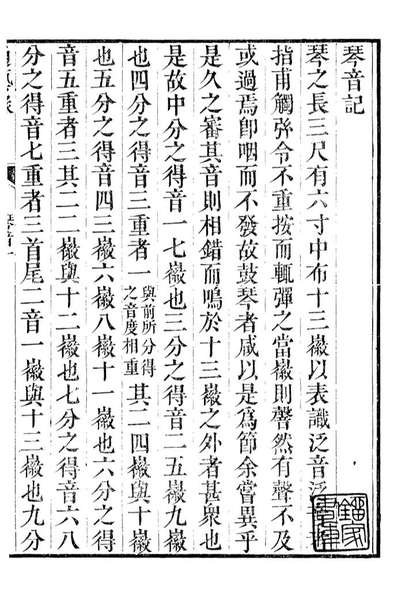 琴音記
琴之長三尺有六寸中布十三徽以表識泛音泛
指甫觸弦令不重按而輒彈之當徽則然有聲不及
或過焉卽咽而不發故鼓琴者咸以是爲節余嘗異乎
是久之審其音則相錯而鳴於十三徽之外者甚衆也
是故中分之得音一七徽也三分之得音二五徽九徽
也四分之得音三重者一與前所分得之音度相重其二四徽與十徽
也五分之得音四三徽六徽八徽十一徽也六分之得
音五重者三其二二徽與十二徽也七分之得音六八
分之得音七重者三首尾二音一徽與十三徽也九分